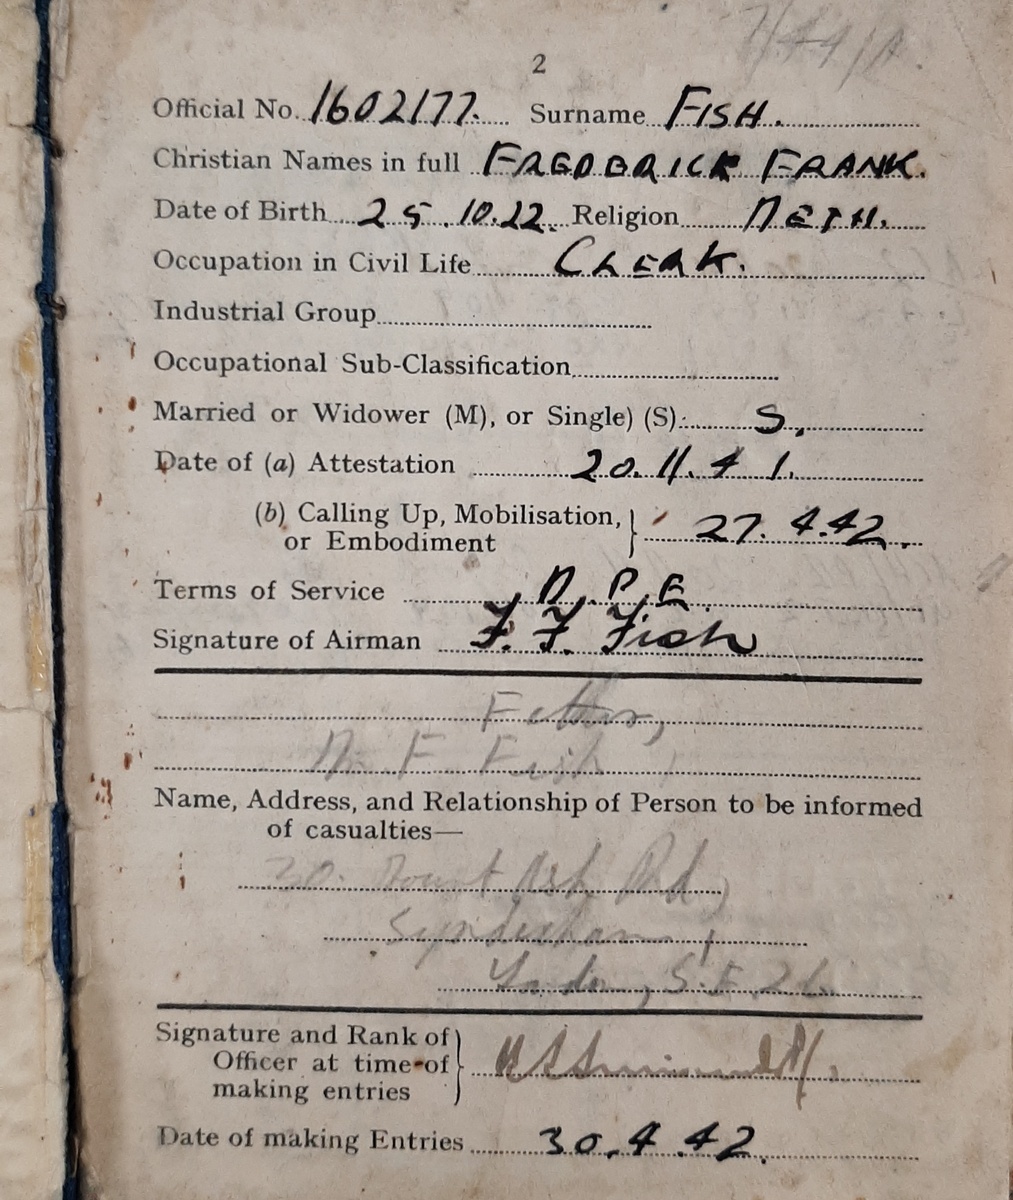 7/44/A.
2
Official No. 1602177. Surname FISH.
Christian Names in full FREDERICK FRANK.
Date of Birth 25.10.22. Religion METH.
Occupation in Civil Life CLERK.
Industrial Group
Occupational Sub-Classification
Married or Widower (M), or Single) (S): S.
Date of (a) Attestation 20.11.41.
(b) Calling Up, Mobilisation, 27.4.42.
or Embodiment
Terms of Service D.P.E.
Signature of Airman F. F. Fish
Father,
Mr F Fish
Name, Address, and Relationship of Person to be informed
of casualties—
30. Mount Ash Rd,
Sydenham,
London, S.E.26.
Signature and Rank of
Officer at time of
making entries
Date of making Entries 30.4.42.